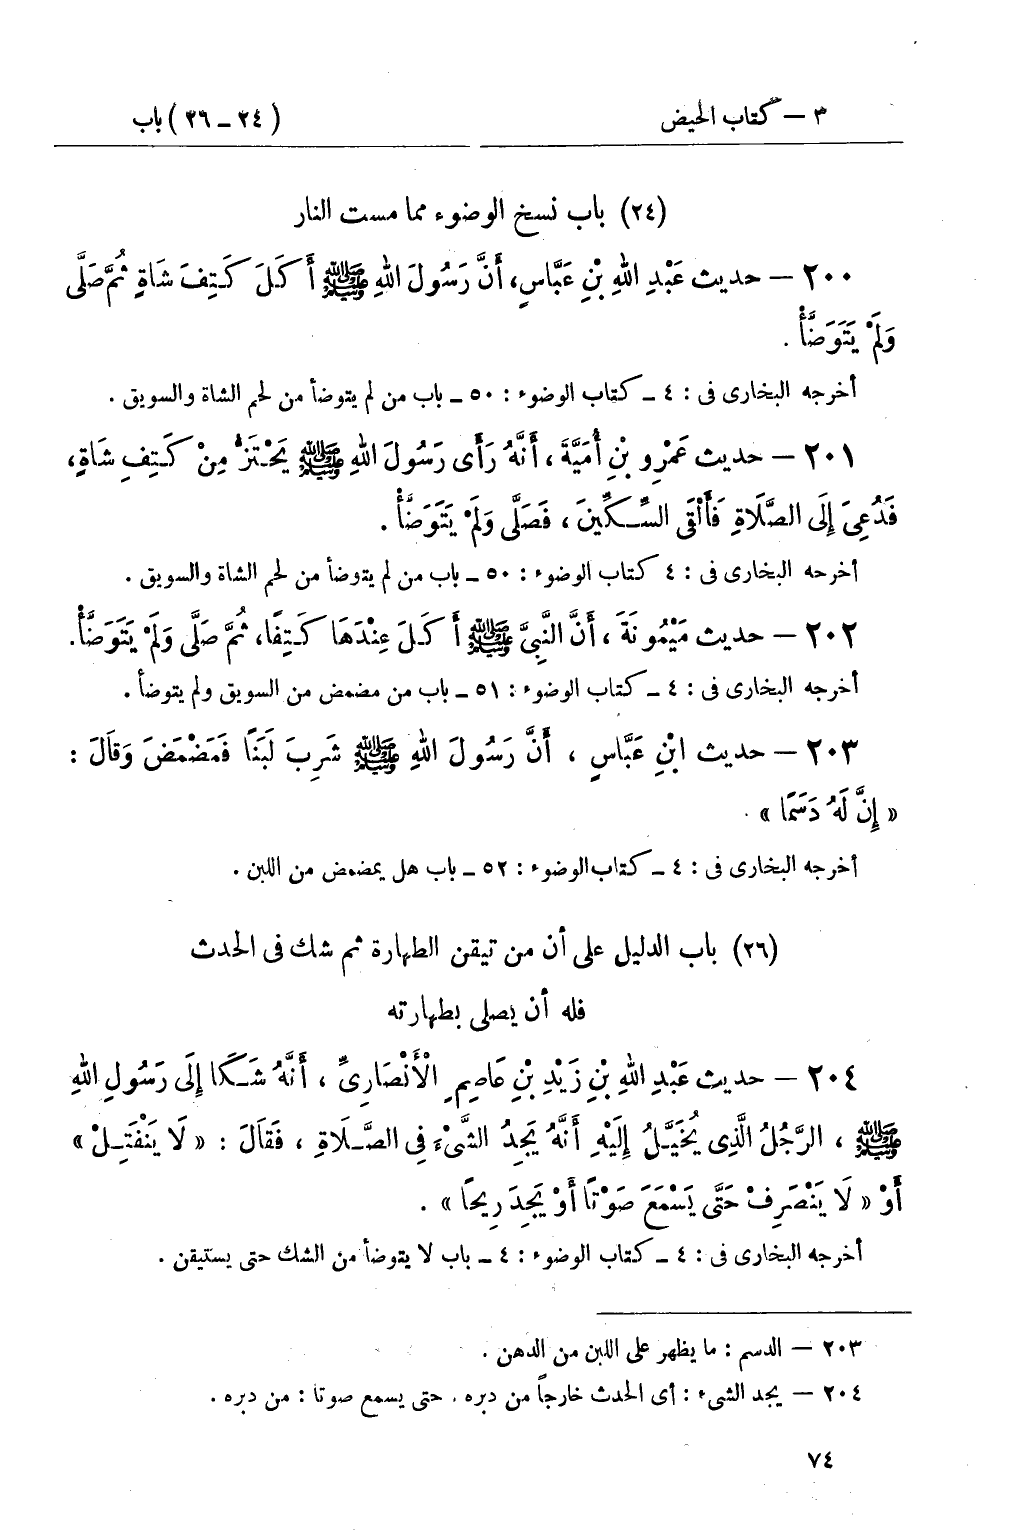 ٣ — كتاب الحيض (٢٤ ـ ٢٦) باب
(٢٤) باب نسخ الوضوء مما مست النار
٢٠٠ — حديث عَبْدِ اللهِ بْنِ عَبَّاسٍ، أَنَّ رَسُولَ اللهِ ﷺ أَكَلَ كَتِفَ شَاةٍ ثُمَّ صَلَّى
وَلَمْ يَتَوَضَّأْ .
أخرجه البخارى فى : ٤ ـ كتاب الوضوء : ٥٠ ـ باب من لم يتوضأ من لحم الشاة والسويق .
٢٠١ — حديث عَمْرِو بْنِ أُمَيَّةَ ، أَنَّهُ رَأَى رَسُولَ اللهِ ﷺ يَحْتَزُّ مِنْ كَتِفِ شَاةٍ ،
فَدُعِىَ إِلَى الصَّلَاةِ فَأَلْقَى السِّكِّينَ ، فَصَلَّى وَلَمْ يَتَوَضَّأْ .
أخرجه البخارى فى : ٤ كتاب الوضوء : ٥٠ ـ باب من لم يتوضأ من لحم الشاة والسويق .
٢٠٢ — حديث مَيْمُونَةَ ، أَنَّ النَّبِىَّ ﷺ أَكَلَ عِنْدَهَا كَتِفًا، ثُمَّ صَلَّى وَلَمْ يَتَوَضَّأْ.
أخرجه البخارى فى : ٤ ـ كتاب الوضوء : ٥١ ـ باب من مضمض من السويق ولم يتوضأ .
٢٠٣ — حديث ابْنِ عَبَّاسٍ ، أَنَّ رَسُولَ اللهِ ﷺ شَرِبَ لَبَنًا فَمَضْمَضَ وَقَالَ :
« إِنَّ لَهُ دَسَمًا » .
أخرجه البخارى فى : ٤ ـ كتاب الوضوء : ٥٢ ـ باب هل يمضمض من اللبن .
(٢٦) باب الدليل على أن من تيقن الطهارة ثم شك فى الحدث
فله أن يصلى بطهارته
٢٠٤ — حديث عَبْدِ اللهِ بْنِ زَيْدِ بْنِ عَاصِمٍ الْأَنْصَارِىِّ ، أَنَّهُ شَكَا إِلَى رَسُولِ اللهِ
ﷺ ، الرَّجُلُ الَّذِى يُخَيَّلُ إِلَيْهِ أَنَّهُ يَجِدُ الشَّىْءَ فِى الصَّلَاةِ ، فَقَالَ : « لَا يَنْفَتِلْ »
أَوْ « لَا يَنْصَرِفْ حَتَّى يَسْمَعَ صَوْتًا أَوْ يَجِدَ رِيحًا » .
أخرجه البخارى فى : ٤ ـ كتاب الوضوء : ٤ ـ باب لا يتوضأ من الشك حتى يستيقن .
٢٠٣ — الدسم : ما يظهر على اللبن من الدهن .
٢٠٤ — يجد الشىء : أى الحدث خارجاً من دبره . حتى يسمع صوتا : من دبره .
٧٤